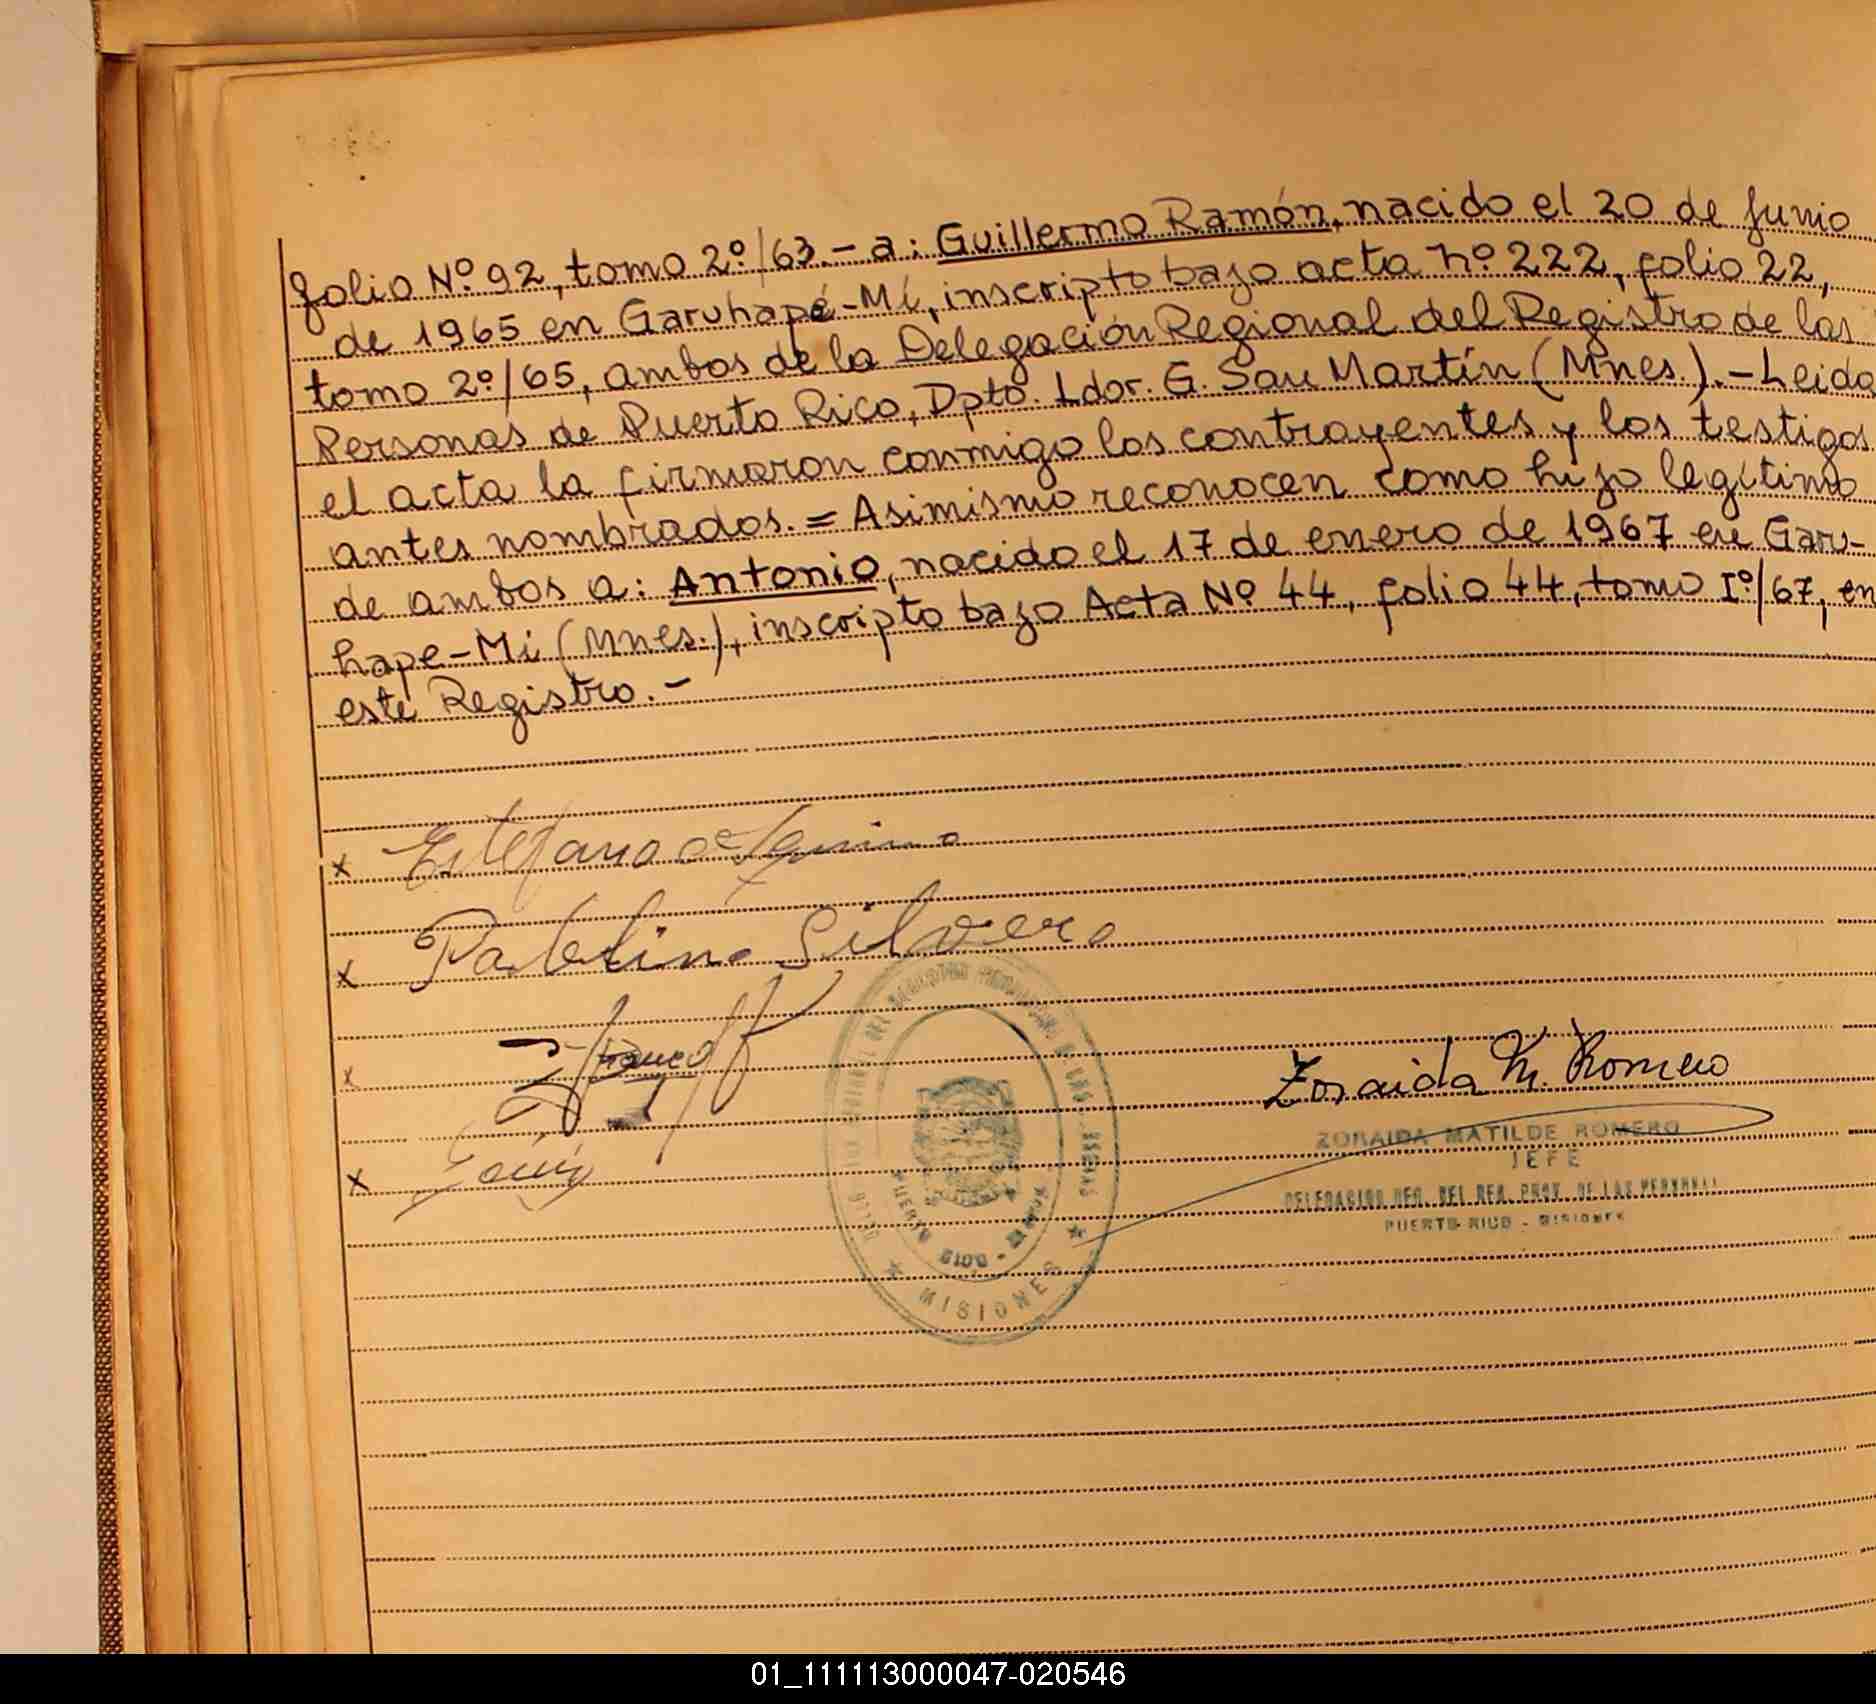 folio Nº 92, tomo 2º/63.- a: Guillermo Ramón, nacido el 20 de Junio
de 1965 en Garuhapé-Mí, inscripto bajo acta nº 222, folio 22,
tomo 2º/65, ambos de la Delegación Regional del Registro de las
Personas de Puerto Rico, Dpto. Ldor. G. San Martín (Mnes.).- Leida
el acta la firmaron conmigo los contrayentes y los testigos
antes nombrados. = Asimismo reconocen como hijo legítimo
de ambos a: Antonio, nacido el 17 de enero de 1967 en Garu-
hape-Mi (Mnes.), inscripto bajo Acta Nº 44, folio 44, tomo Iº/67, en
este Registro.-
x Estefana de Aquino
x Silvero
x Franco
x
Zoraida M. Romero
ZORAIDA MATILDE ROMERO
JEFE
DELEGACION REG. DEL REG. PROV. DE LAS PERSONAS
PUERTO RICO - MISIONES
PUERTO RICO
MISIONES
01_111113000047-020546